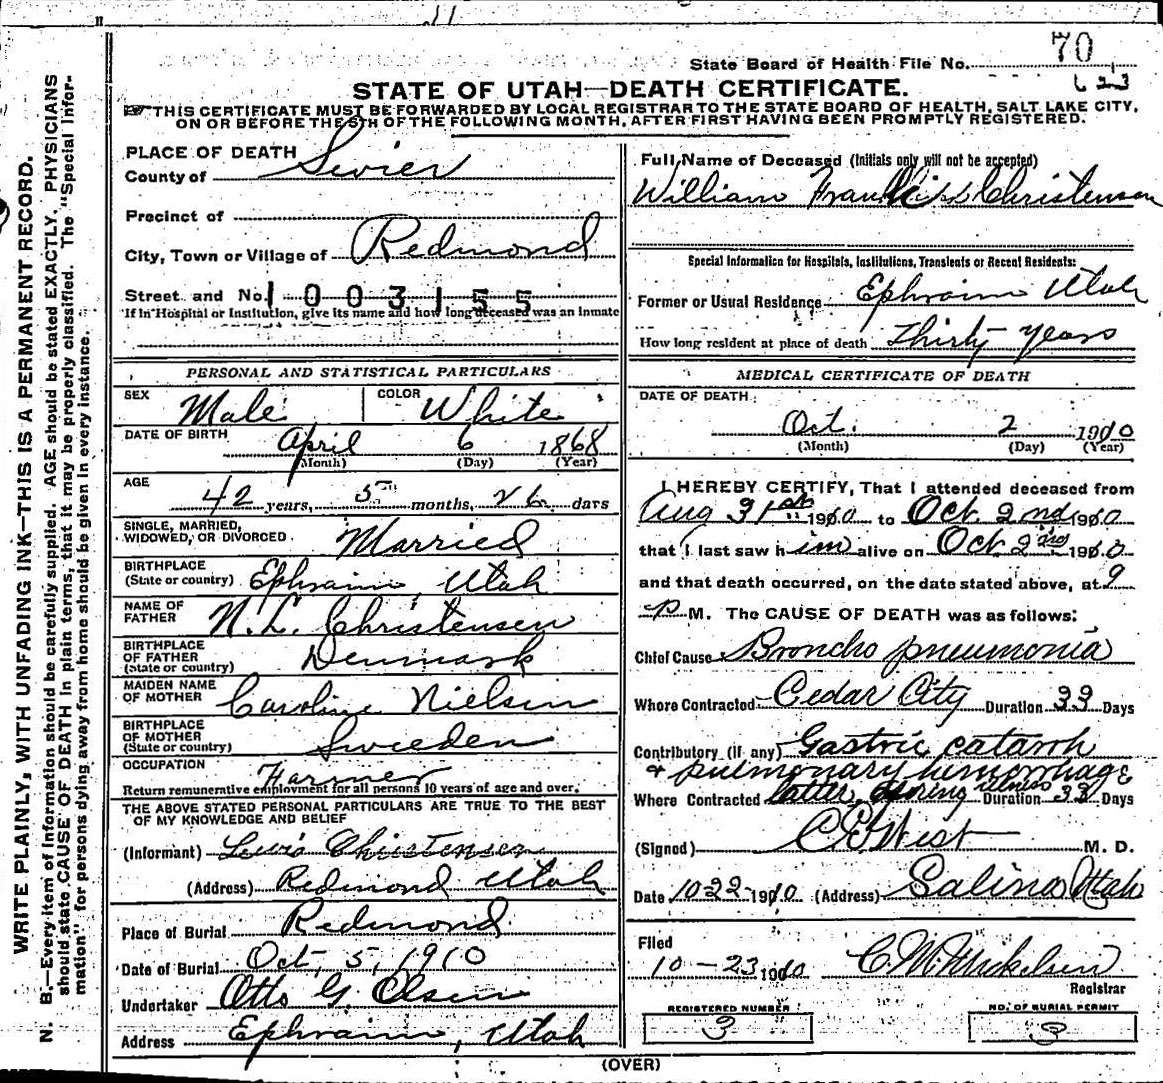 State Board of Health File No. 70
623
STATE OF UTAH—DEATH CERTIFICATE.
THIS CERTIFICATE MUST BE FORWARDED BY LOCAL REGISTRAR TO THE STATE BOARD OF HEALTH, SALT LAKE CITY,
ON OR BEFORE THE 5TH OF THE FOLLOWING MONTH, AFTER FIRST HAVING BEEN PROMPTLY REGISTERED.
WRITE PLAINLY, WITH UNFADING INK—THIS IS A PERMANENT RECORD.
N. B.—Every item of information should be carefully supplied. AGE should be stated EXACTLY. PHYSICIANS
should state CAUSE OF DEATH in plain terms, that it may be properly classified. The "Special Infor-
mation" for persons dying away from home should be given in every instance.
PLACE OF DEATH
County of Sevier
Precinct of
City, Town or Village of Redmond
Street and No. 1003155
If in Hospital or Institution, give its name and how long deceased was an inmate
PERSONAL AND STATISTICAL PARTICULARS
SEX Male COLOR White
DATE OF BIRTH April 6 1868
(Month) (Day) (Year)
AGE 42 years, 5 months, 26 days
SINGLE, MARRIED,
WIDOWED, OR DIVORCED Married
BIRTHPLACE
(State or country) Ephraim, Utah
NAME OF
FATHER N. L. Christensen
BIRTHPLACE
OF FATHER
(State or country) Denmark
MAIDEN NAME
OF MOTHER Caroline Nielsen
BIRTHPLACE
OF MOTHER
(State or country) Sweeden
OCCUPATION Farmer
Return remunerative employment for all persons 10 years of age and over.
THE ABOVE STATED PERSONAL PARTICULARS ARE TRUE TO THE BEST
OF MY KNOWLEDGE AND BELIEF
(Informant) Lewis Christensen
(Address) Redmond Utah
Place of Burial Redmond
Date of Burial Oct, 5, 1910
Undertaker Otto G. Olsen
Address Ephraim, Utah
Full Name of Deceased (Initials only will not be accepted)
William Franklin Christenson
Special Information for Hospitals, Institutions, Transients or Recent Residents:
Former or Usual Residence Ephraim Utah
How long resident at place of death Thirty years
MEDICAL CERTIFICATE OF DEATH
DATE OF DEATH
Oct. 2 1910
(Month) (Day) (Year)
I HEREBY CERTIFY, That I attended deceased from
Aug 31st 1910 to Oct. 2nd 1910
that I last saw him alive on Oct 2nd 1910
and that death occurred, on the date stated above, at 9
P M. The CAUSE OF DEATH was as follows:
Chief Cause Broncho pneumonia
Where Contracted Cedar City Duration 33 Days
Contributory (if any) Gastric catarrh
& pulmonary hemorrhage
Where Contracted latter during illness Duration 33 Days
(Signed) C E West M. D.
Date 10 22 1910 (Address) Salina Utah
Filed
10-23 1910 C. M. Mickelsen
Registrar
REGISTERED NUMBER
3
NO. OF BURIAL PERMIT
3
(OVER)